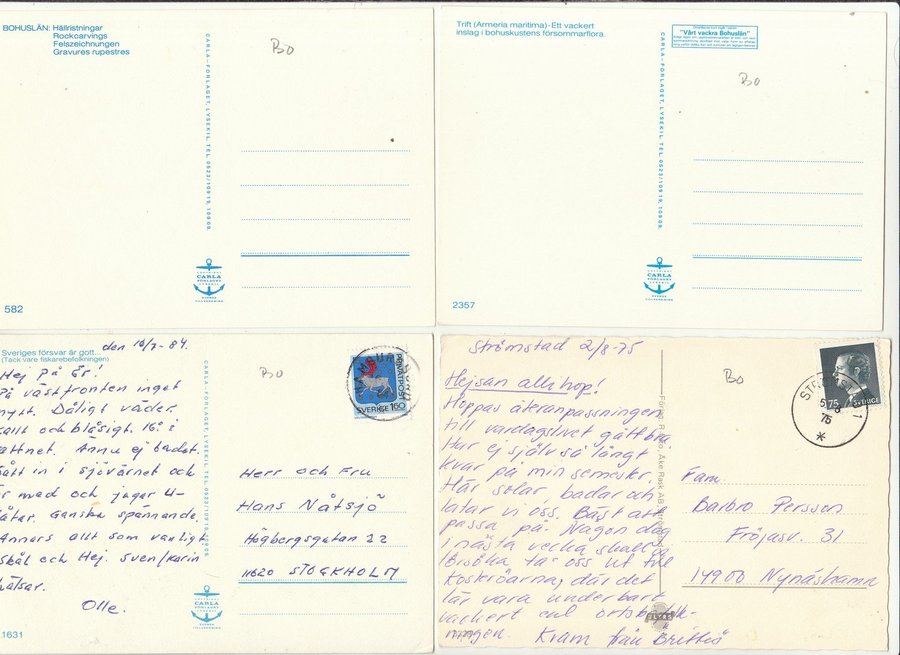 BOHUSLÄN: Hällristningar
Rockcarvings
Felszeichnungen
Gravures rupestres
Bo
CARLA-FÖRLAGET, LYSEKIL, TEL 0523/10919, 10908
COPYRIGHT
CARLA
FÖRLAGET
LYSEKIL
SVENSK
TILLVERKNING
582
Trift (Armeria maritima) - Ett vackert
inslag i bohuskustens försommarflora.
"Vårt vackra Bohuslän"
Bo
CARLA-FÖRLAGET, LYSEKIL, TEL 0523/10919, 10908
COPYRIGHT
CARLA
FÖRLAGET
LYSEKIL
SVENSK
TILLVERKNING
2357
Sveriges försvar är gott...
(Tack vare fiskarebefolkningen)
den 16/7-84.
Hej På Er!
På västfronten inget
nytt. Dåligt väder.
kallt och blåsigt. 16° i
vattnet. Ännu ej badat.
gått in i sjövärnet och
är med och jagar U-
båtar. Ganska spännande.
Annars allt som vanligt
Skål och Hej. Sven/Karin
hälsar.
Olle.
1631
Bo
CARLA-FÖRLAGET, LYSEKIL, TEL 0523/10919, 10908
CARLA
FÖRLAGET
LYSEKIL
SVENSK
TILLVERKNING
PRIVATPOST
SVERIGE 160
Herr och Fru
Hans Nåtsjö
Högbergsgatan 22
11620 STOCKHOLM
Strömstad 2/8-75
Hejsan allihop!
Hoppas återanpassningen
till vardagslivet gått bra
Har ej själv så långt
kvar på min semester.
Här solar, badar och
latar vi oss. Bäst att
passa på. Någon dag
i nästa vecka skall vi
försöka ta oss ut till
Kosteröarna, där det
lär vara underbart
vackert enl ortsbefolk-
ningen. Kram från Britt
Bo
Åke Rask AB
STRÖMSTAD 1
5 8
75
75
SVERIGE
Fam.
Barbro Persson
Fröjasv. 31
14900 Nynäshamn